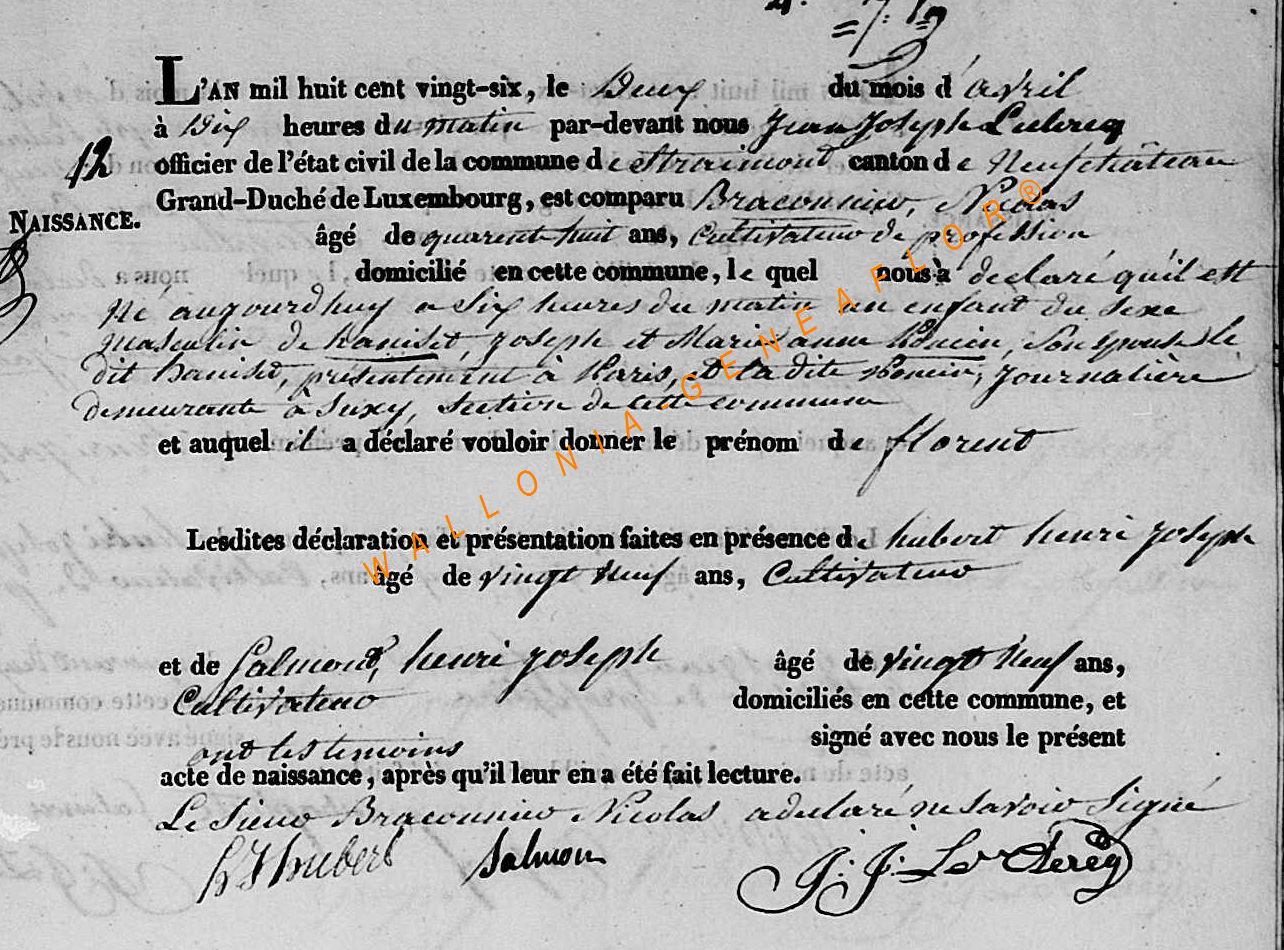 L'AN mil huit cent vingt-six, le Deux du mois d'avril
à Dix heures du matin par-devant nous Jean Joseph Leclercq
12
officier de l'état civil de la commune de Straimont canton de Neufchâteau
Grand-Duché de Luxembourg, est comparu Braconnier, Nicolas
NAISSANCE.
âgé de quarent huit ans, Cultivateur de profession
domicilié en cette commune, le quel nous a declaré qu'il est
Né aujourdhuy a Six heures du matin un enfant du Sexe
masculin de haniset, joseph et Marie anne, Son Epouse le
dit haniset, présentement à Paris, et la dite, Journalière
demeurante à Suxy, Section de cette commune
et auquel il a déclaré vouloir donner le prénom de florent
Lesdites déclaration et présentation faites en présence de hubert henri joseph
âgé de vingt Neuf ans, Cultivateur
et de Salmont, henri joseph âgé de vingt Neuf ans,
Cultivateur domiciliés en cette commune, et
ont les temoins signé avec nous le présent
acte de naissance, après qu'il leur en a été fait lecture.
Le Sieur Braconnier Nicolas a declaré ne Savoir Signé
h J hubert Salmon J: J: Le Clercq
WALLONIA-GENEAFLOR®